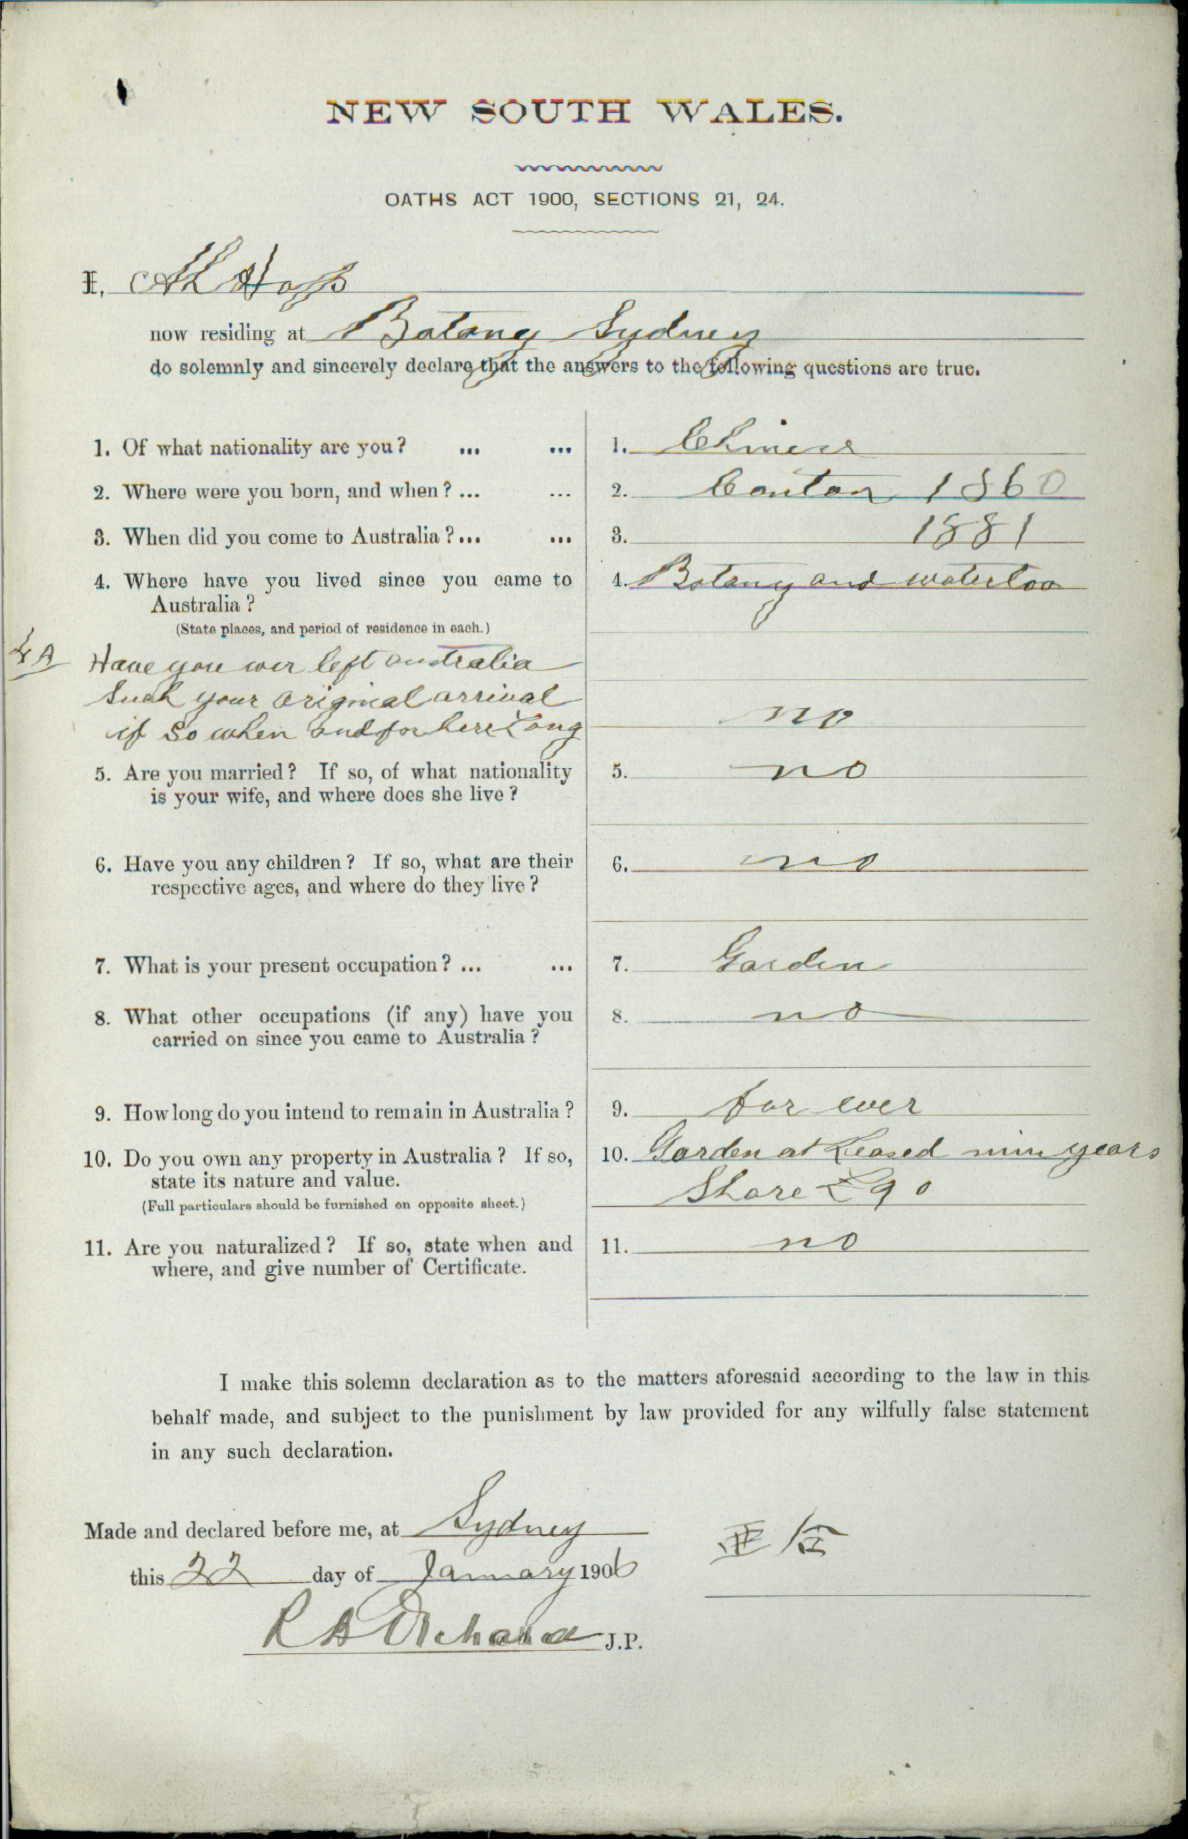 NEW SOUTH WALES.
OATHS ACT 1900, SECTIONS 21, 24.
I, Ah Hop
now residing at Botany Sydney
do solemnly and sincerely declare that the answers to the following questions are true.
1. Of what nationality are you? ... ... 1. Chinese
2. Where were you born, and when? ... ... 2. Canton 1860
3. When did you come to Australia? ... ... 3. 1881
4. Where have you lived since you came to 4. Botany and waterloo
Australia?
(State places, and period of residence in each.)
4A Have you ever left australia
your original arrival
if so when and for how Long no
5. Are you married? If so, of what nationality 5. no
is your wife, and where does she live?
6. Have you any children? If so, what are their 6. no
respective ages, and where do they live?
7. What is your present occupation? ... ... 7. Garden
8. What other occupations (if any) have you 8. no
carried on since you came to Australia?
9. How long do you intend to remain in Australia? 9. for ever
10. Do you own any property in Australia? If so, 10. Garden at Leased years
state its nature and value. Share £90
(Full particulars should be furnished on opposite sheet.)
11. Are you naturalized? If so, state when and 11. no
where, and give number of Certificate.
I make this solemn declaration as to the matters aforesaid according to the law in this
behalf made, and subject to the punishment by law provided for any wilfully false statement
in any such declaration.
Made and declared before me, at Sydney
亜合
this 22 day of January 1906
R B Orchard J.P.